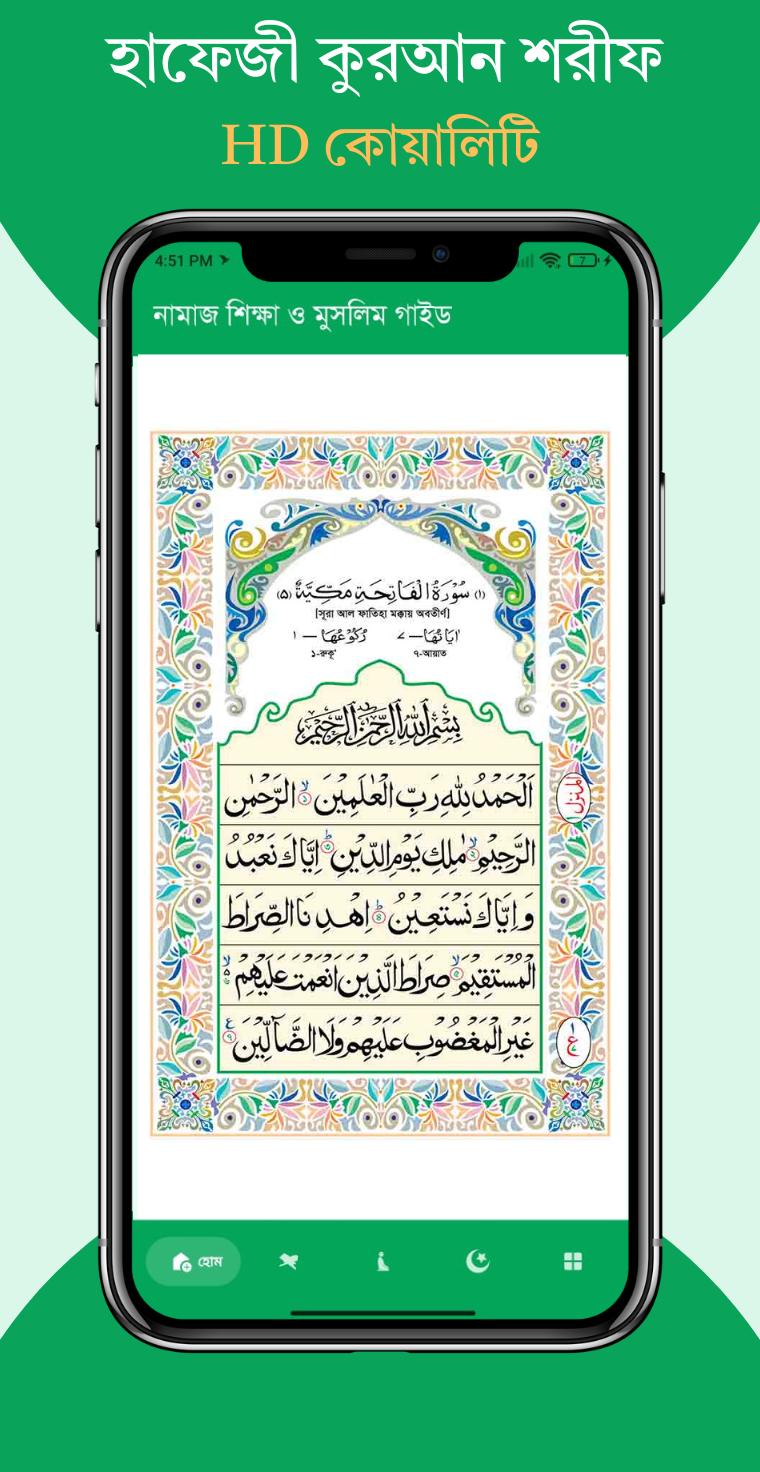 হাফেজী কুরআন শরীফ
HD কোয়ালিটি
4:51 PM
7
নামাজ শিক্ষা ও মুসলিম গাইড
(۱) سُوْرَةُ الْفَاتِحَةِ مَكِّيَّةٌ (۵)
[সূরা আল ফাতিহা মক্কায় অবতীর্ণ]
اٰيَاتُهَا — ۷ رُكُوْعُهَا — ۱
৭-আয়াত ১-রুকূ'
بِسْمِ اللّٰهِ الرَّحْمٰنِ الرَّحِيْمِ
اَلْحَمْدُ لِلّٰهِ رَبِّ الْعٰلَمِيْنَ ۙ﴿۱﴾ الرَّحْمٰنِ
الرَّحِيْمِ ۙ﴿۲﴾ مٰلِكِ يَوْمِ الدِّيْنِ ؕ﴿۳﴾ اِيَّاكَ نَعْبُدُ
وَ اِيَّاكَ نَسْتَعِيْنُ ؕ﴿۴﴾ اِهْدِ نَا الصِّرَاطَ
الْمُسْتَقِيْمَ ۙ﴿۵﴾ صِرَاطَ الَّذِيْنَ اَنْعَمْتَ عَلَيْهِمْ ۙ۵
غَيْرِ الْمَغْضُوْبِ عَلَيْهِمْ وَلَا الضَّآلِّيْنَ ﴿۶﴾ ع
المنزل ۱
۱ ع
হোম